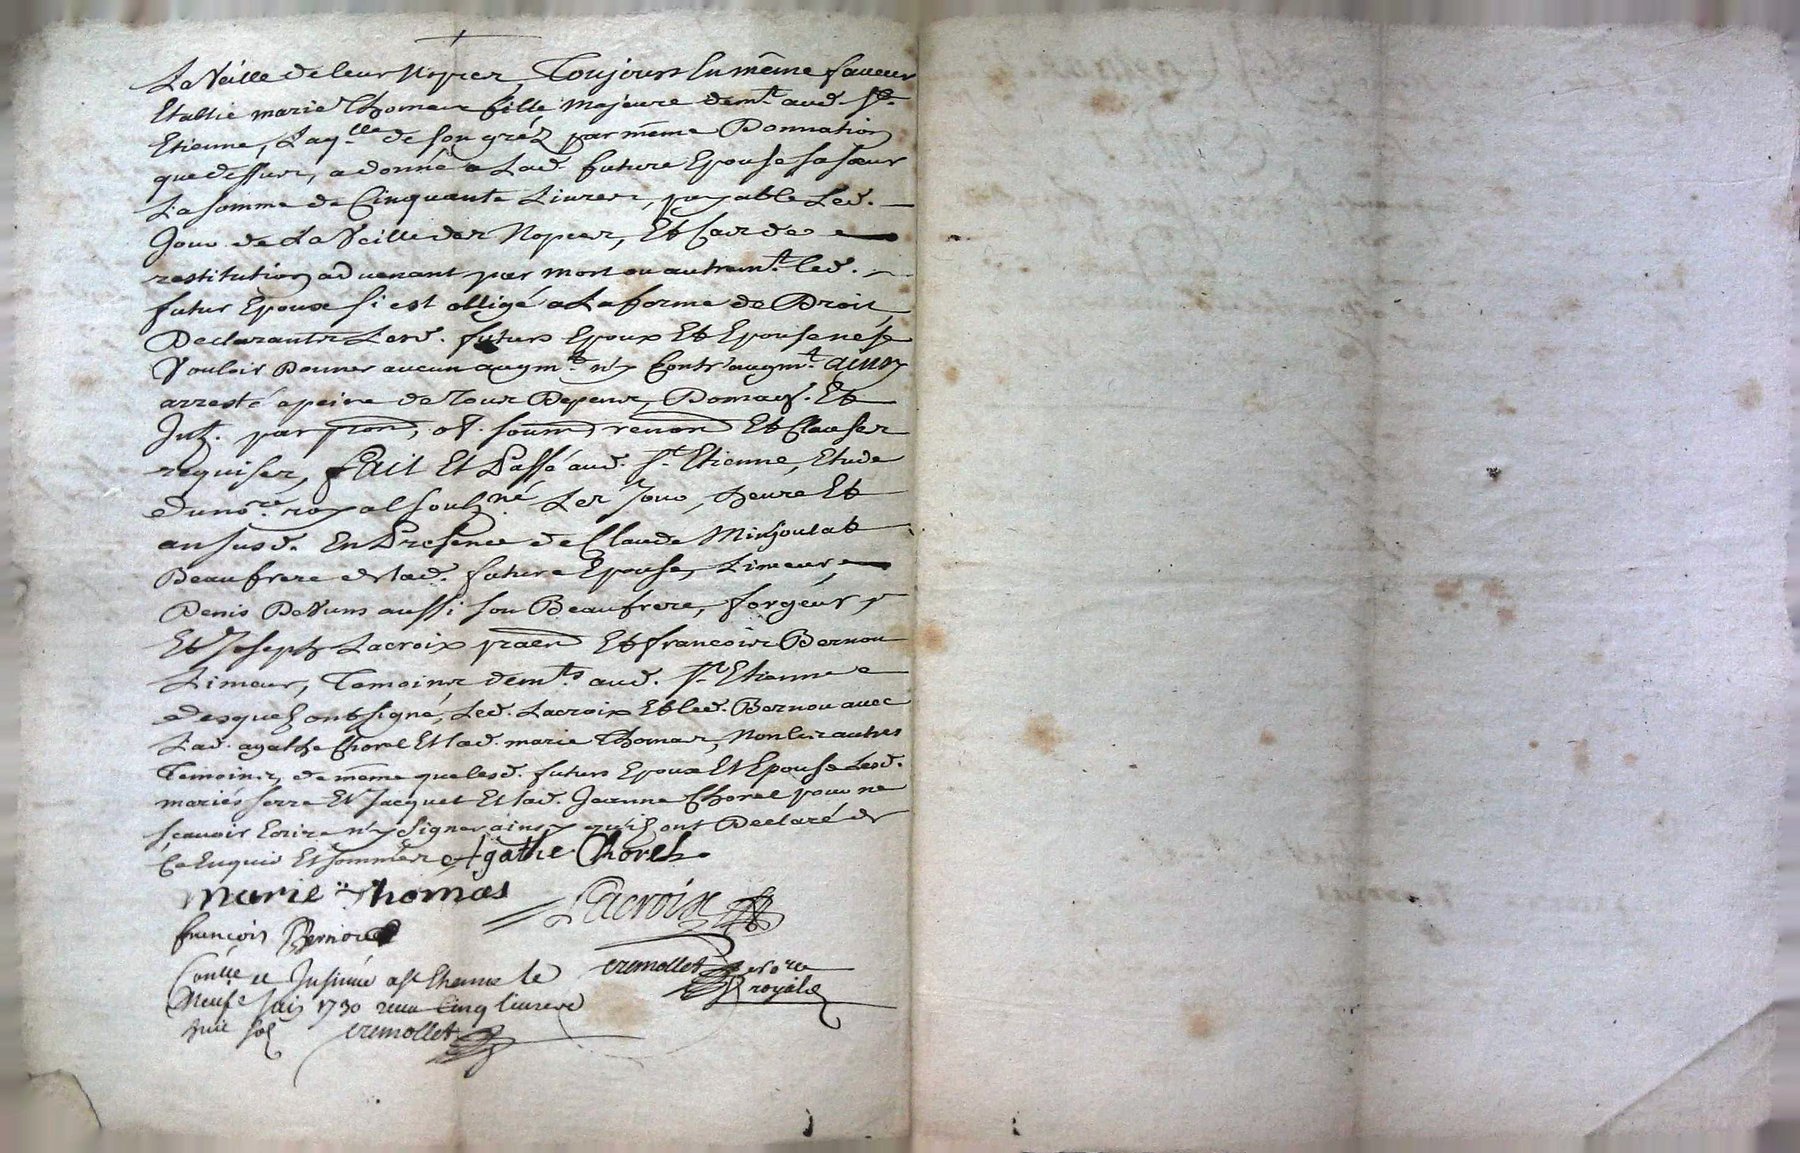 La Veille de leur Nopces, Toujours En même faveur
Etablie marie Thomas fille Majeure dem.t aud. S.t
Etienne, Laq.lle de son gréz par même Donnation
que dessus, a donné a Lad. future Epouse sa sœur
La somme de Cinquante Livres, payable Led.
Jour de La Veille des Nopces, Et Cas de
restitution advenant par mort ou autrem.t led.
futur Epoux si est obligé a La forme de Droit,
Declarants Lesd. futurs Epoux Et Epouse ne se
Vouloir Donner aucun augm.t n'y Contr'augm.t ainsy
arresté a peine de Tous Depens, Domag. Et
Int. par prom, ob. soum renon Et Clauses
requises, fait Et Passé aud. S.t Etienne, Etude
du no.re royal souz.né Les Jour, heure Et
an susd. En Presence de Claude Minjoulat
Beaufrere de lad. future Epouse, Limeur
Denis Devuns aussi son Beaufrere, forgeur
Et Joseph Lacroix pâen Et francois Bernou
Limeur, Temoins dem.ts aud. S.t Etienne
desquelz ont signé, Led. Lacroix Et led. Bernou avec
Lad. agathe Chorel Et lad. marie Thomas, Non les autres
Temoins, de même que lesd. futurs Epoux Et Epouse Lesd.
mariés serre Et Jacquet Et lad. Jeanne Chorel pour ne
sçavoir Ecrire n'y Signer ainsy qu'ilz ont Declaré de
Ce Enquis Et sommés Agathe Chorel
marie Thomas Lacroix
francois Bernou
Cont.llé et Insinué a St Etienne le cremollet no.re
Neuf.e Juin 1730 receu Cinq livres royal
huit sols cremollet